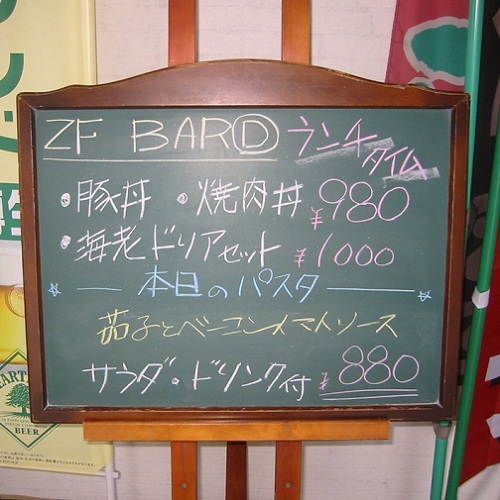 2F BARⒹ ランチタイム
・豚丼 ・焼肉丼 ¥980
・海老ドリアセット ¥1000
☆ — 本日のパスタ — ☆
茄子とベーコントマトソース
サラダ・ドリンク付 ¥880
BEER